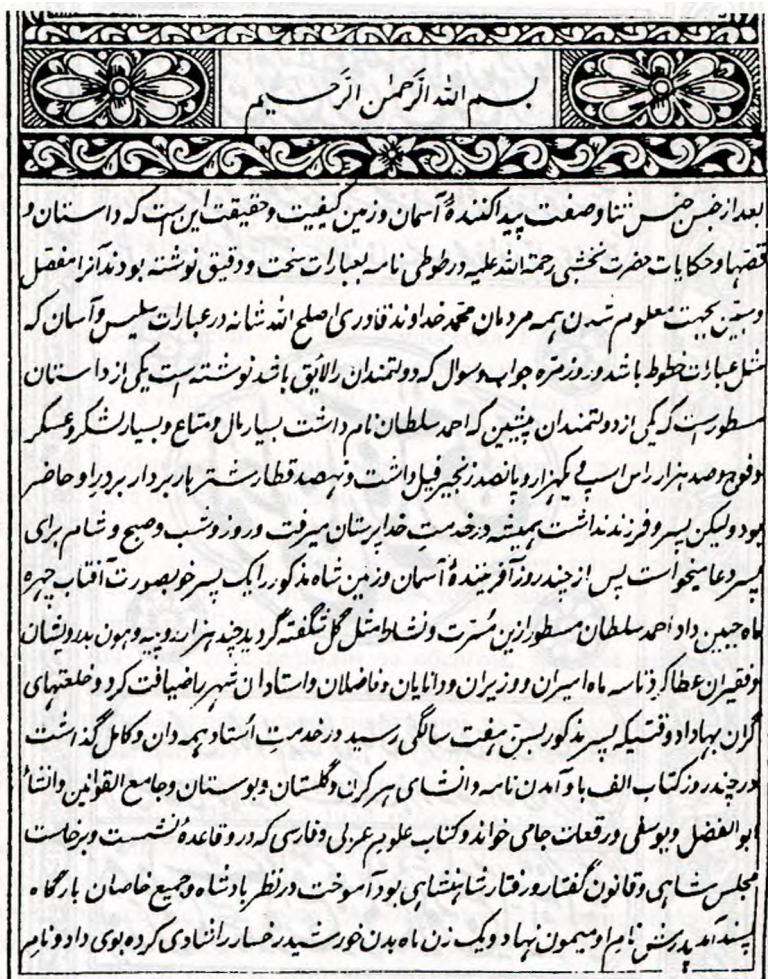 بسم الله الرحمن الرحيم
بعد از جنس جنس ثنا و صفت پیدا کنندهٔ آسمان و زمین کیفیت و حقیقت این است که داستان و
قصها و حکایات حضرت نخشبی رحمة الله علیه در طوطی نامه بعبارات سخت و دقیق نوشته بودند آنرا مفصل
و مبین بجهت معلوم شدن همه مردمان محمد خداوند قادری اصلح الله شانه در عبارات سلیس و آسان که
مثل عبارات خطوط باشد و روزمره جواب و سوال که دولتمندان را لایق باشد نوشته است یکی از داستان
مسطور است که یکی از دولتمندان پیشین که احمد سلطان نام داشت بسیار مال و متاع و بسیار لشکر و عسکر
و فوج و صد هزار راس اسپ یکهزار و پانصد زنجیر فیل داشت و نهصد قطار شتر باربردار بر در او حاضر
بود ولیکن پسر و فرزند نداشت همیشه در خدمت خدا پرستان میرفت و روز و شب و صبح و شام برای
پسر دعا میخواست پس از چند روز آفرینندهٔ آسمان و زمین شاه مذکور را یک پسر خوبصورت آفتاب چهره
ماه جبین داد احمد سلطان مسطور ازین مسرت و نشاط مثل گل شگفته گردید چند هزار روپیه و هون بدرویشان
و فقیران عطا کرد تا سه ماه امیران و وزیران و دانایان و فاضلان و استادان شهر را ضیافت کرد و خلعتهای
گران بها داد وقتیکه پسر مذکور بسن هفت سالگی رسید در خدمت استاد همه دان و کامل گذاشت
در چند روز کتاب الف با و آمدن نامه و انشای هرکرن و گلستان و بوستان و جامع القوانین و انشأ
ابو الفضل و یوسفی و رقعات جامی خواند و کتاب علوم عربی و فارسی که در و قاعدهٔ نشست و برخاست
مجلس شاهی و قانون گفتار و رفتار شاهنشاهی بود آموخت در نظر بادشاه و جمیع خاصان بارگاه
پسند آمد پدرش نام او میمون نهاد و یک زن ماه بدن خورشید رخسار را شادی کرده بوی داد و نام